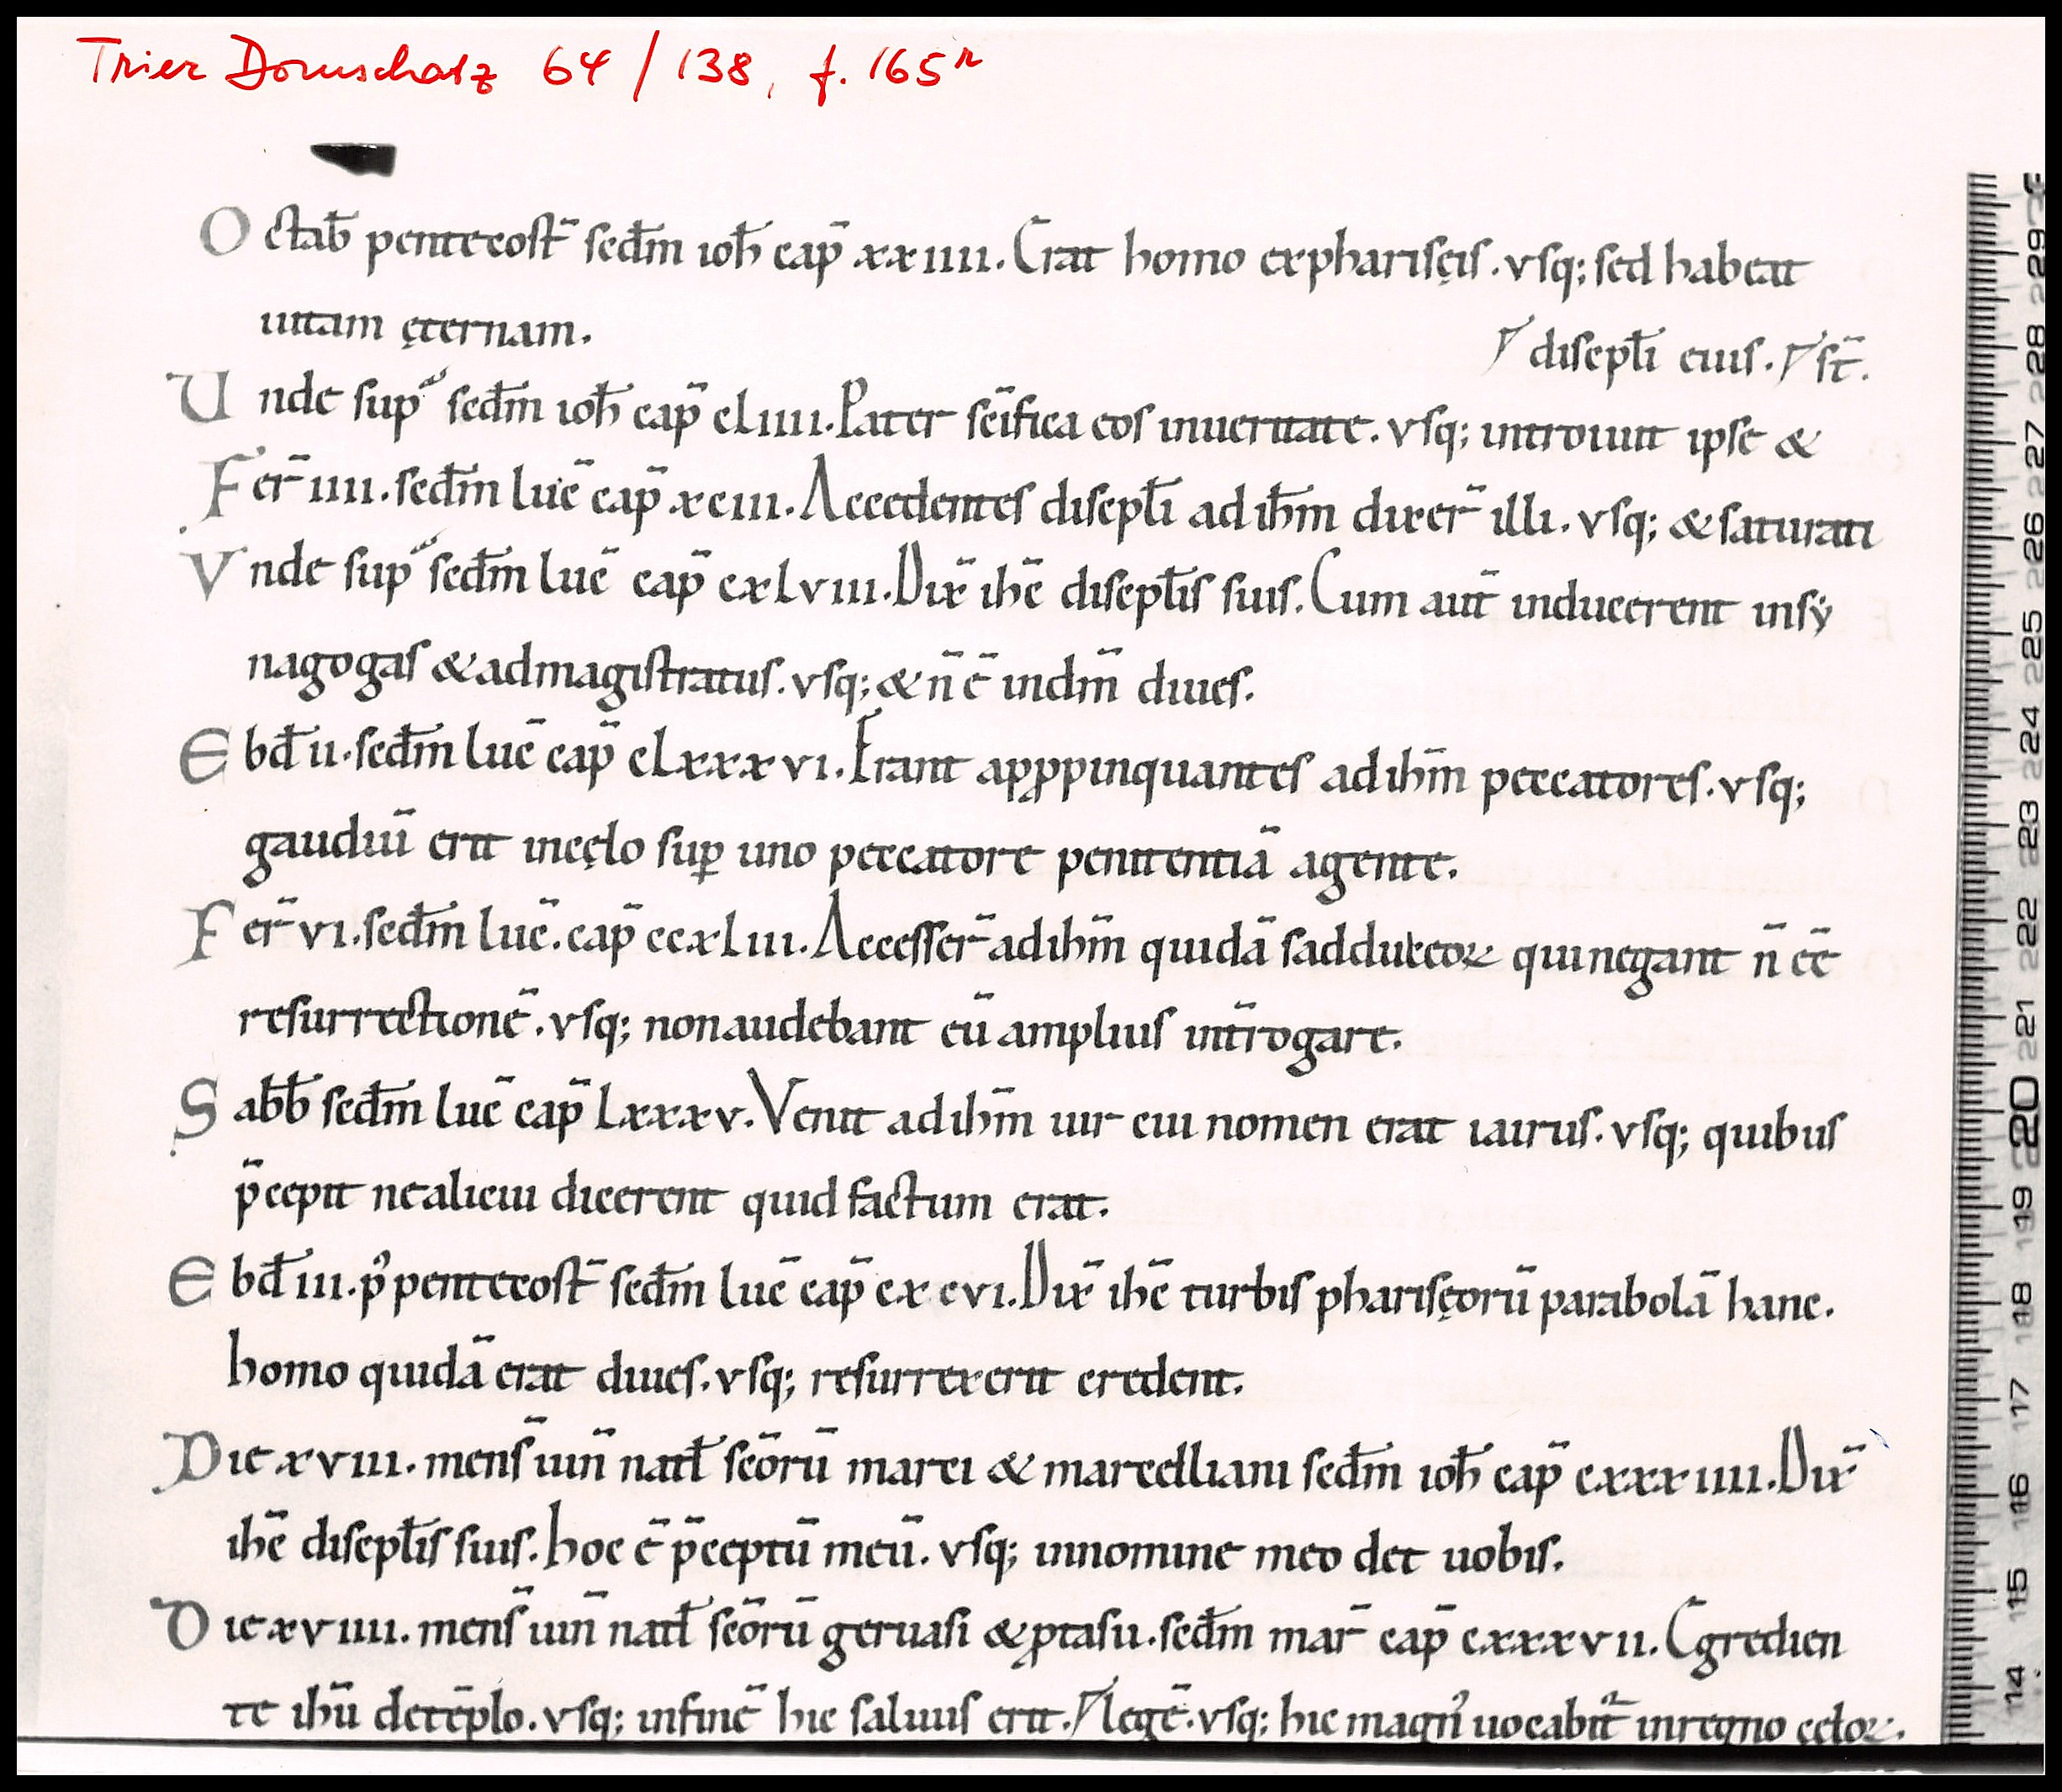 Trier Domschatz 64 / 138, f. 165r
Octab̄ pentecost̄ sedm̄ ioh̄ cap̄ xxiiii. Erat homo expharisęis. vsq; sed habeat
uitam ęternam.
discpłi eius. st̄.
Unde supª sedm̄ ioh̄ cap̄ cliiii. Pater sc̄ifica eos inueritate. vsq; introiuit ipse &
Fer̄ iiii. sedm̄ luc̄ cap̄ xciii. Accedentes discpłi ad ihm̄ dixer̄ illi. vsq; & saturati
Vnde supª sedm̄ luc̄ cap̄ cxlviii. Dix̄ ihc̄ discpłis suis. Cum aut̄ inducerent insẏ
nagogas & admagistratus. vsq; & n̄ ē indm̄ diues.
Ebd̄ ii. sedm̄ luc̄ cap̄ clxxxvi. Erant apꝓpinquantes ad ihm̄ peccatores. vsq;
gaudiū erit incęlo suꝑ uno peccatore penitentiā agente.
Fer̄ vi. sedm̄ luc̄. cap̄ ccxliii. Accesser̄ ad ihm̄ quidā sadduceoꝝ qui negant n̄ eē
resurrectionē. vsq; non audebant eū amplius int̄rogare.
Sabb̄ sedm̄ luc̄ cap̄ lxxxv. Venit ad ihm̄ uir cui nomen erat iairus. vsq; quibus
p̄cepit ne alicui dicerent quid factum erat.
Ebd̄ iii. p᾿ pentecost̄ sedm̄ luc̄ cap̄ cxcvi. Dix̄ ihc̄ turbis pharisęorū parabolā hanc.
homo quidā erat diues. vsq; resurrexerit credent.
Die xviii. mens̄ iun̄ natł sc̄orū marci & marcelliani sedm̄ ioh̄ cap̄ cxxxiiii. Dix̄
ihc̄ discpłis suis. hoc ē p̄ceptū meū. vsq; innomine meo det uobis.
Die xviiii. mens̄ iun̄ natł sc̄orū geruasi & ꝓtasii. sedm̄ mar̄ cap̄ cxxxvii. Egredien
te ihū detēplo. vsq; infinē hic saluus erit. legē. vsq; hic magn᾿ uocabit᷑ inregno cęloꝝ.
29
28
27
26
25
24
23
22
21
20
19
18
17
16
15
14